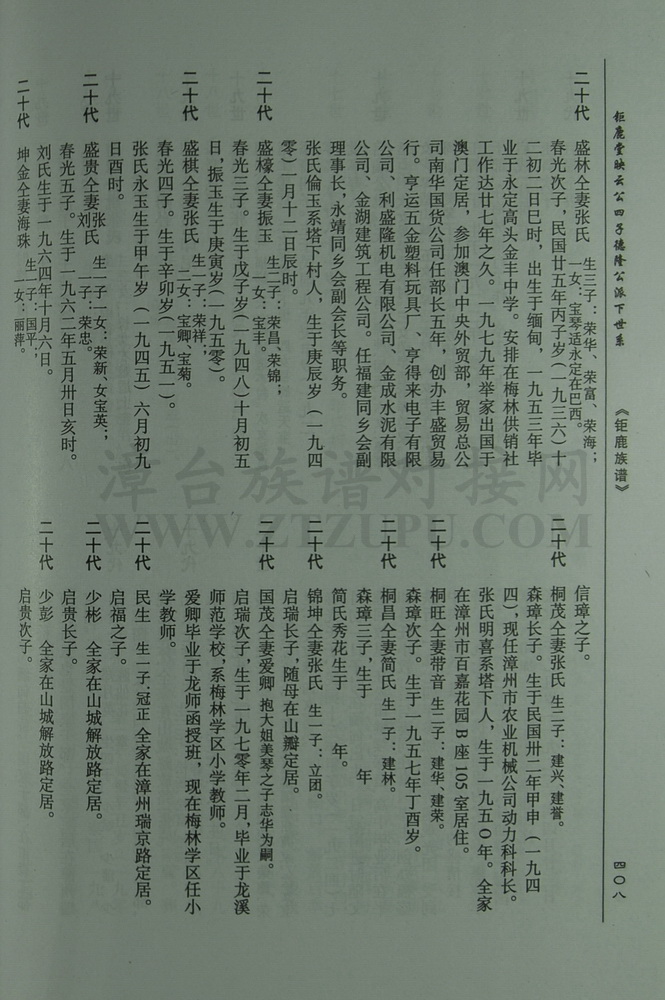 钜鹿堂映云公四子德隆公派下世系
《钜鹿族谱》
四〇八
二十代 盛林仝妻张氏 生三子：荣华、荣富、荣海；
一女：宝琴适永定在巴西。
春光次子，民国廿五年丙子岁（一九三六）十
二初二日巳时，出生于缅甸，一九五三年毕
业于永定高头金丰中学。安排在梅林供销社
工作达廿七年之久。一九七九年举家出国于
澳门定居，参加澳门中央外贸部，贸易总公
司南华国货公司任部长五年，创办丰盛贸易
行。亨运五金塑料玩具厂、亨得来电子有限
公司、利盛隆机电有限公司、金成水泥有限
公司、金湖建筑工程公司。任福建同乡会副
理事长，永靖同乡会副会长等职务。
张氏倫玉系塔下村人，生于庚辰岁（一九四
零）一月十二日辰时。
二十代 盛檺仝妻振玉 生二子：荣昌、荣锦；
一女：宝丰。
春光三子。生于戊子岁（一九四八）十月初五
日，振玉生于庚寅岁（一九五零）。
二十代 盛棋仝妻张氏 生一子：荣祥，
二女：宝卿、宝菊。
春光四子。生于辛卯岁（一九五一）。
张氏永玉生于甲午岁（一九四五）六月初九
日酉时。
二十代 盛贵仝妻张氏 生一子一女：荣新、女宝英；
刘 一子：荣忠。
春光五子。生于一九六二年五月卅日亥时。
刘氏生于一九六四年十月六日。
二十代 坤金仝妻海珠 生一子：国平，
一女：丽萍。
信璋之子。
二十代 桐茂仝妻张氏 生二子：建兴、建誉。
森璋长子。生于民国卅二年甲申（一九四
四），现任漳州市农业机械公司动力科科长。
张氏明喜系塔下人，生于一九五〇年。全家
在漳州市百嘉花园B座105室居住。
二十代 桐旺仝妻带音 生二子：建华、建荣。
森璋次子。生于一九五七年丁酉岁。
二十代 桐昌仝妻简氏 生一子：建林。
森璋三子，生于 年
简氏秀花生于 年。
二十代 锦坤仝妻张氏 生一子：立团。
启瑞长子，随母在山瓣定居。
二十代 国茂仝妻爱卿 抱大姐美琴之子志华为嗣。
启瑞次子，生于一九七零年二月，毕业于龙溪
师范学校，系梅林学区小学教师。
爱卿毕业于龙师函授班，现在梅林学区任小
学教师。
二十代 民生 生一子：冠正 全家在漳州瑞京路定居。
启福之子。
二十代 少彬 全家在山城解放路定居。
启贵长子。
二十代 少彭 全家在山城解放路定居。
启贵次子。
漳台族谱对接网
WWW.ZTZUPU.COM